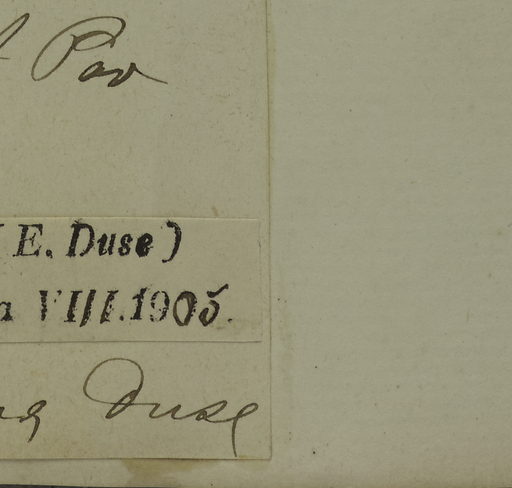 Par
( E. Duse )
a VIII.1905.
Duse